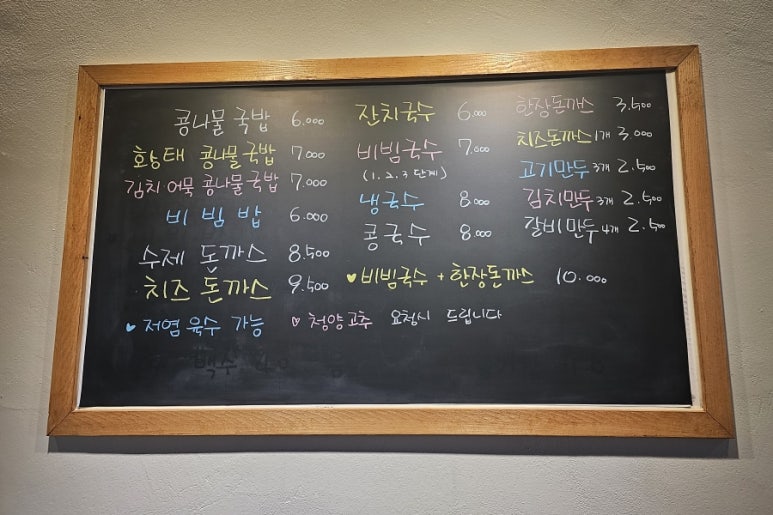 콩나물 국밥 6.000
황태 콩나물국밥 7.000
김치·어묵 콩나물국밥 7.000
비빔밥 6.000
수제 돈까스 8.500
치즈 돈까스 9.500
잔치국수 6.000
비빔국수 7.000
(1.2.3 단계)
냉국수 8.000
콩국수 8.000
한장돈까스 3.500
치즈돈까스 1개 3.000
고기만두 3개 2.500
김치만두 3개 2.500
갈비만두 4개 2.500
♥ 비빔국수 + 한장돈까스 10.000
♥ 저염 육수 가능
♥ 청양고추 요청시 드립니다